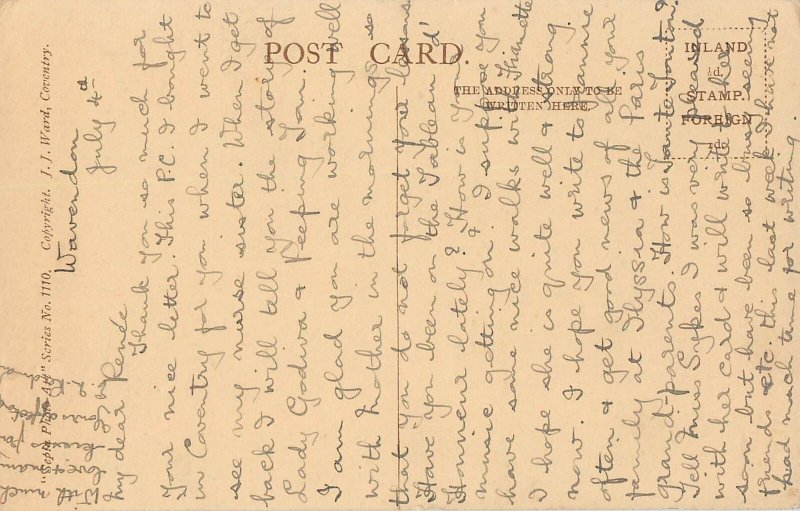 POST CARD.
THE ADDRESS ONLY TO BE
WRITTEN HERE.
INLAND
½d.
STAMP.
FOREIGN
1d.
"Sepia Photo Art" Series No. 1110. Copyright. J. J. Ward, Coventry.
Wavendon
July 4th
My dear Renée
Thank you so much for
your nice letter. This P.C. I bought
in Coventry for you when I went to
see my nurse sister. When I get
back I will tell you the story of
Lady Godiva & Peeping Tom.
I am glad you are working well
with Mother in the mornings so
that you do not forget your lessons
Have you been on the "Tableau d'
Honneur" lately? How is your
music getting on. I suppose you
have some nice walks with Nanette
I hope she is quite well & strong
now. I hope you write to Nannie
often & get good news of all your
family at & the Paris
grand-parents. How is Tante
Tell Miss Sykes I was very pleased
with her card & will write to her
soon but have been so busy seeing
friends etc. this last week I have not
had much time for writing.
With much
love & many
kisses from
yours affectly